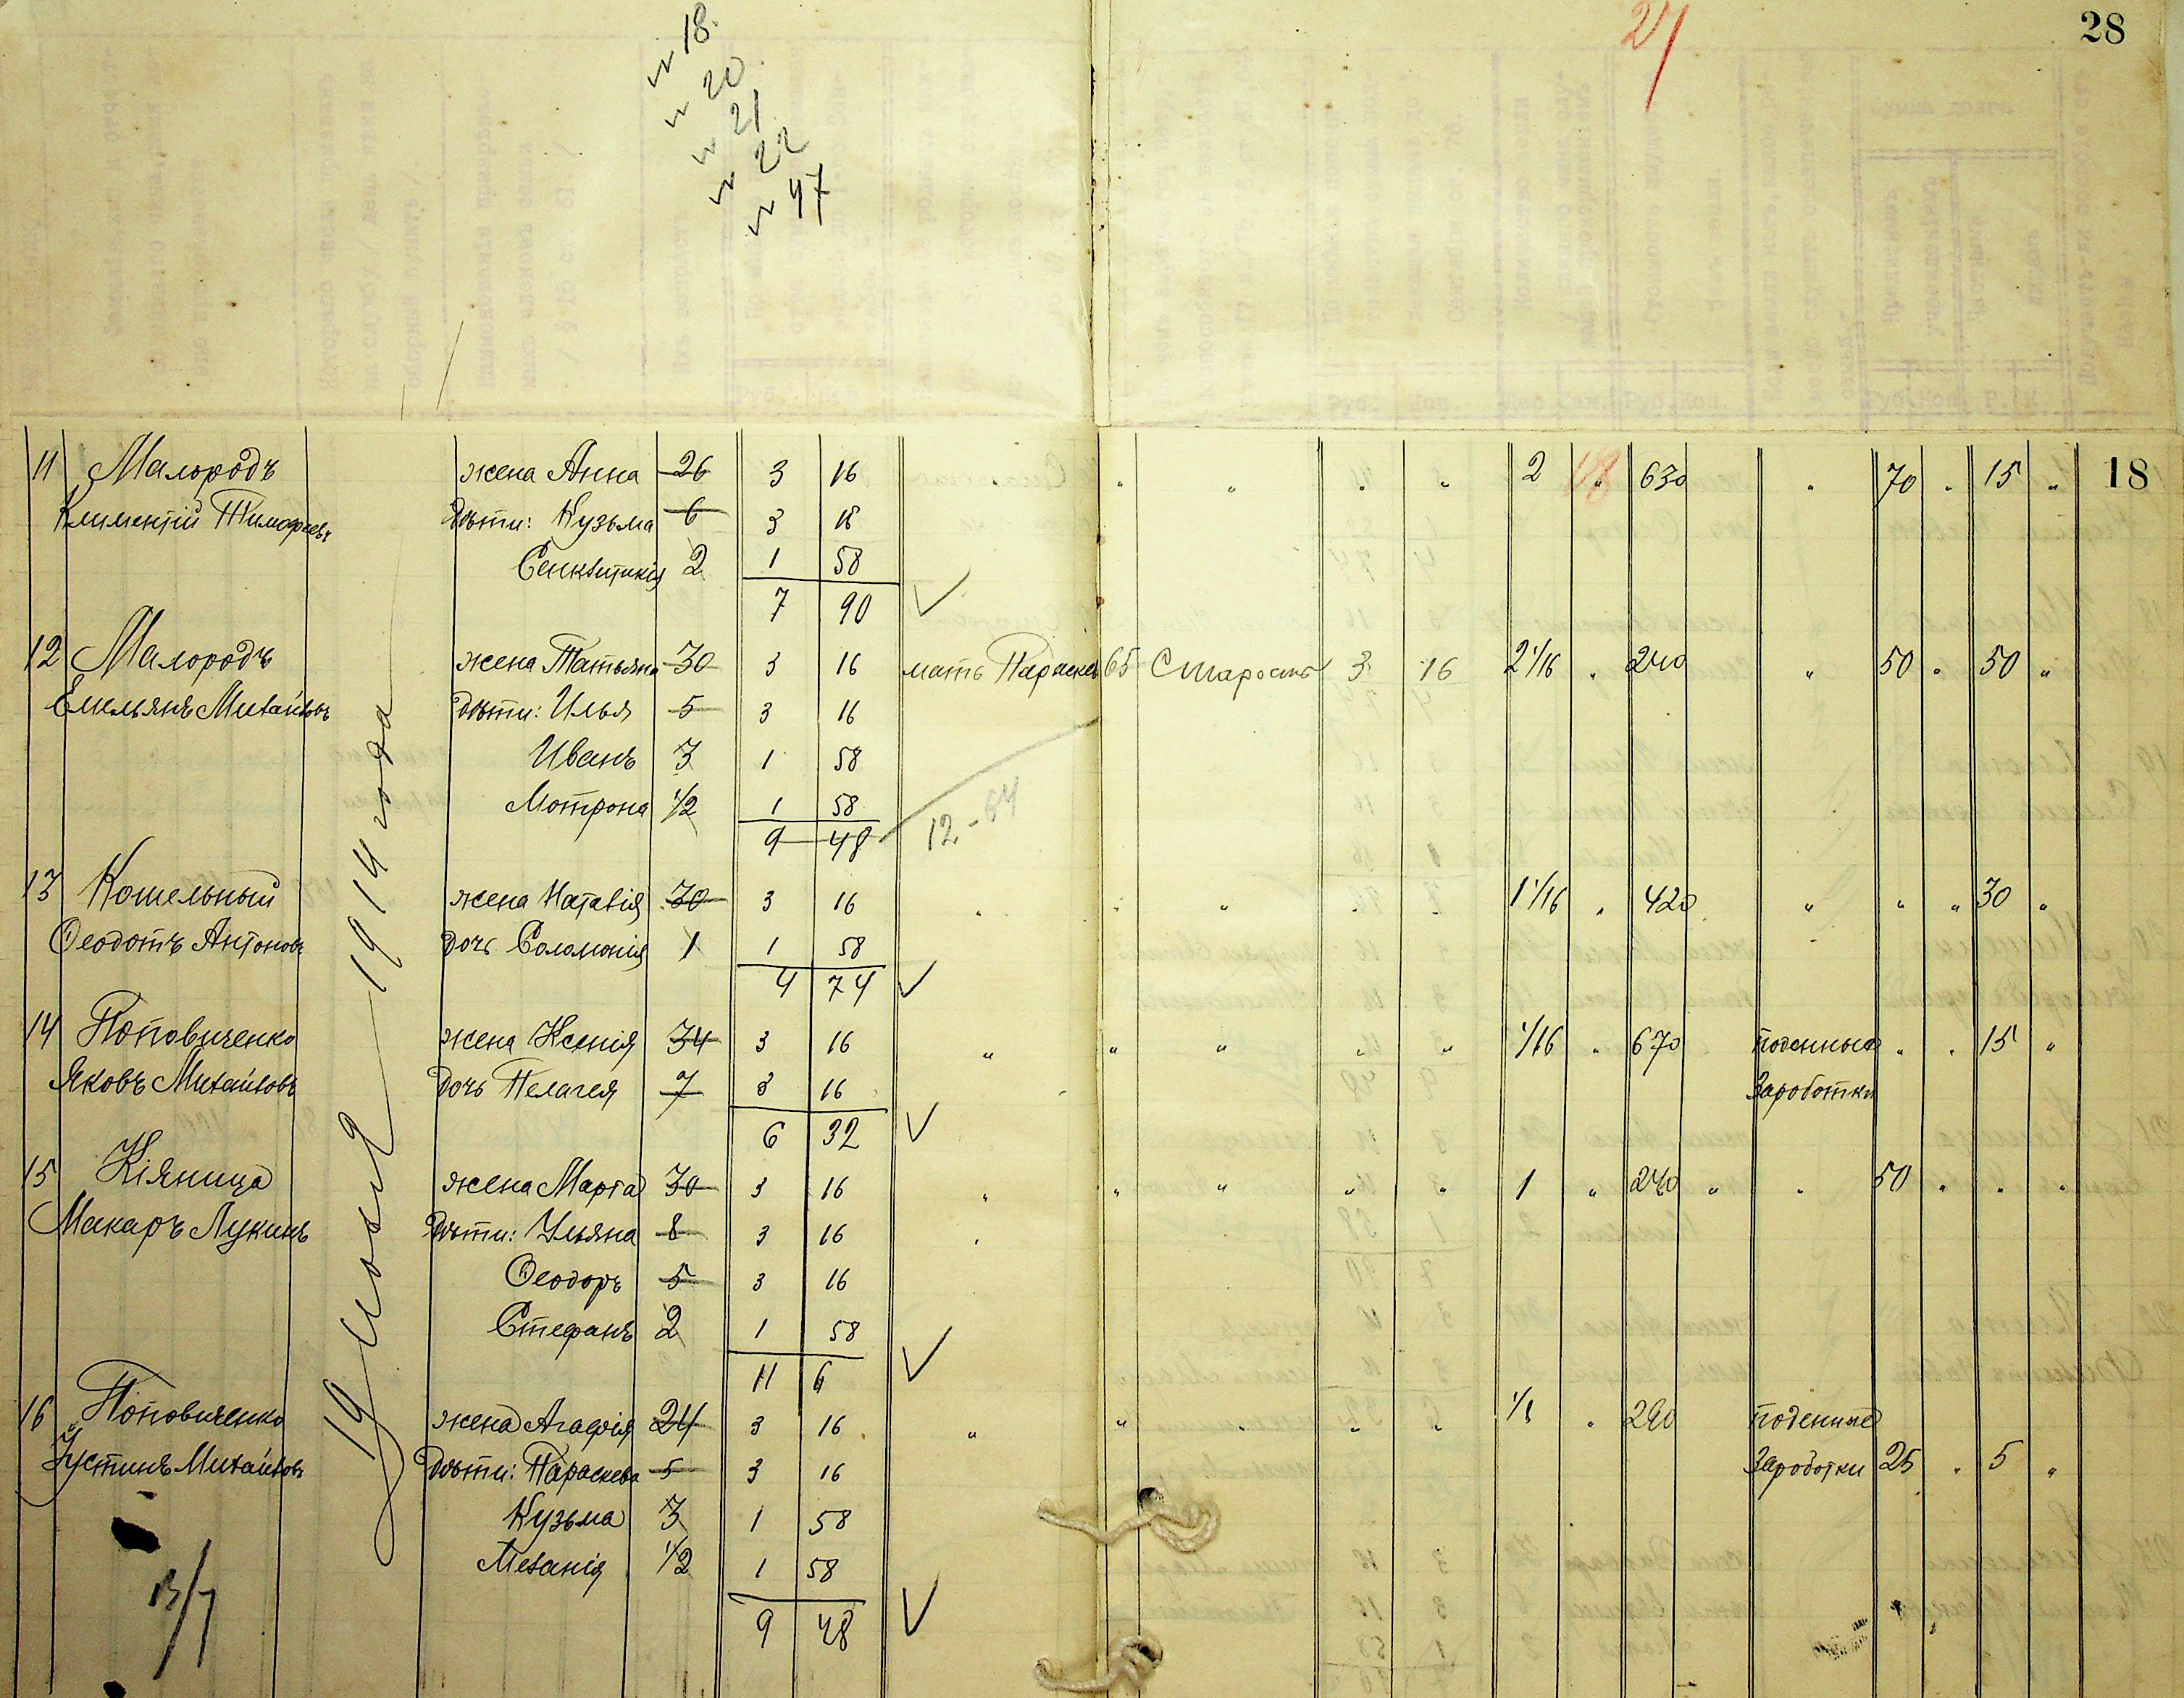 № 18.
№ 20.
№ 21
№ 22
№ 47
27
28
11 Малородъ жена Анна 26 3 16 " " " " 2 " 630 " 70 " 15 " 18
Климентій Тимофеевъ дѣти: Кузьма 6 3 16
2 1 58
7 90
12 Малородъ жена Татьяна 30 3 16 мать Параскев 65 Старость 3 16 2 1/16 " 240 " 50 " 50 "
Емельянъ Михайловъ дѣти: Илья 5 3 16
Иванъ 3 1 58
Мотрона 1/2 1 58
9 48 12-64
13 Кошельный жена Наталія 30 3 16 " " " " " 1 1/16 " 420 " " " 30 "
Ѳеодотъ Антоновъ дочь Соломонія 1 1 58
4 74
14 Поповиченко жена Ксенія 34 3 16 " " " " " 1/16 " 670 поденные " " 15 "
Яковъ Михайловъ дочь Пелагея 7 3 16 Зароботки
6 32
15 Кіяница жена Марта 30 3 16 " " " " " 1 " 240 " " 50 " " "
Макаръ Лукинъ дѣти: Ульяна 8 3 16
Ѳеодоръ 5 3 16
Стефанъ 2 1 58
11 6
16 Поповиченко жена Агафія 24 3 16 " " " " " " поденные
Іустинъ Михайловъ дѣти: Параскева 5 3 16 Зароботки 25 " 5 "
Кузьма 3 1 58
Меланія 1/2 1 58
9 48
19 1914 года